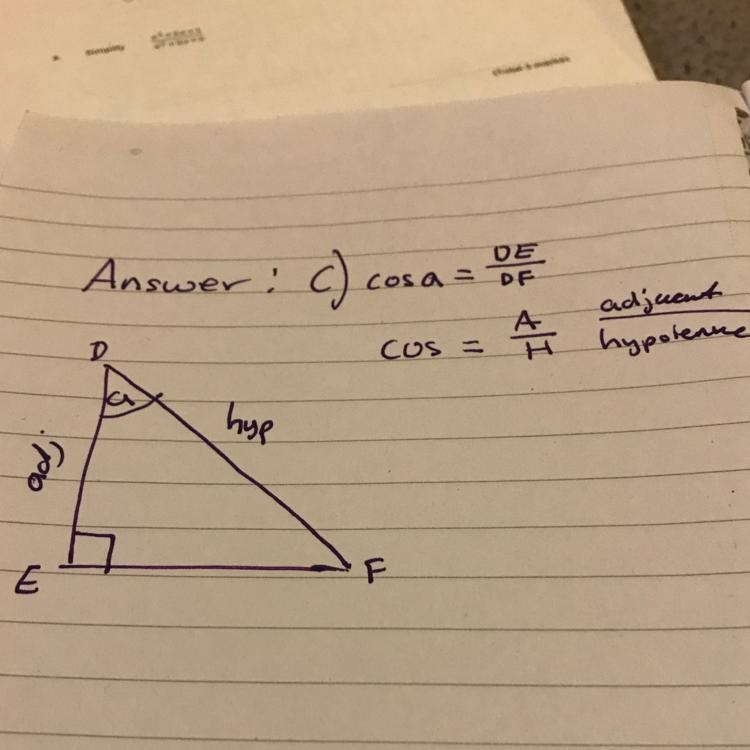 Simplify
Answer: C) cos a = DE/DF
cos = A/H adjacent/hypotenuse
D
a
hyp
adj
E
F